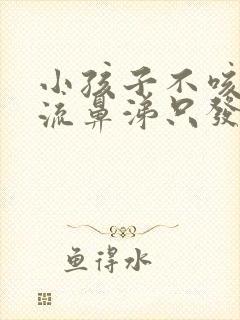 小孩子不咳
流鼻涕只發
鱼得水